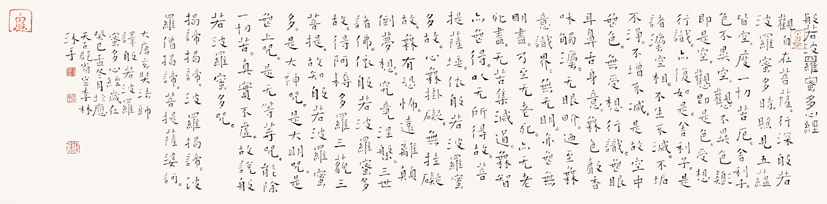 般若波羅蜜多心經
觀自在菩薩行深般若
波羅蜜多時照見五蘊
皆空。度一切苦厄。舍利子。
色不異空。空不異色。色
即是空。空即是色。受想
行識。亦復如是。舍利子。是
諸法空相。不生不滅。不垢
不淨。不增不減。是故空中
無色。無受想行識。無眼
耳鼻舌身意。無色聲香
味觸法。無眼界。乃至無
意識界。無無明。亦無無
明盡。乃至無老死。亦無老
死盡。無苦集滅道。無智
亦無得。以無所得故。菩
提薩埵。依般若波羅蜜
多故。心無掛礙。無掛礙
故。無有恐怖。遠離顛
倒夢想。究竟涅槃。三世
諸佛。依般若波羅蜜多
故。得阿耨多羅三藐三
菩提。故知般若波羅蜜
多。是大神咒。是大明咒。是
無上咒。是無等等咒。能除
一切苦。真實不虛。故說般
若波羅蜜多。
揭諦揭諦。波羅揭諦。波
羅僧揭諦。菩提薩婆訶。
大唐玄奘法師
譯般若波羅
蜜多心經歲在
癸巳
沐手